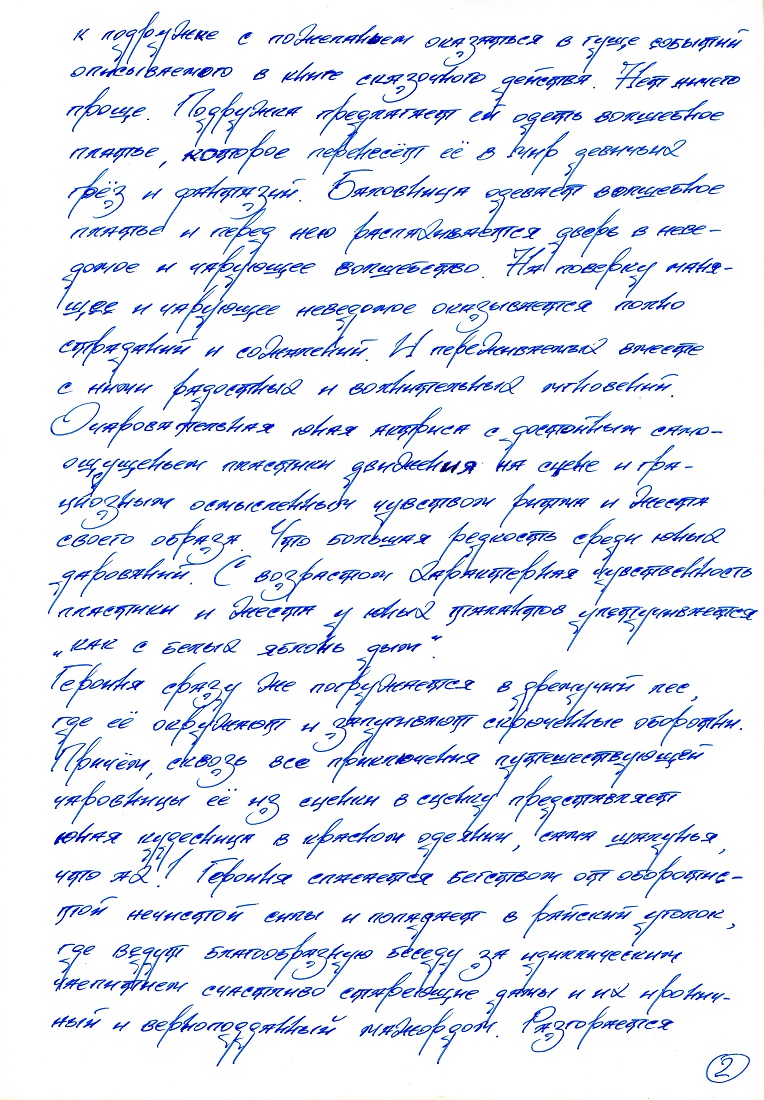 к подружке с пожеланьем оказаться в гуще событий
описываемого в книге сказочного действа. Нет ничего
проще. Подружка предлагает ей одеть волшебное
платье, которое перенесёт её в мир девичьих
грёз и фантазий. Баловница одевает волшебное
платье и перед нею распахивается дверь в неве-
домое и чарующее волшебство. На поверку маня-
щее и чарующее неведомое оказывается полно
страданий и сожалений. И переживаемых вместе
с ними радостных и волнительных мгновений.
Очаровательная юная актриса с достойным само-
ощущеньем пластики движения на сцене и гра-
циозным осмысленным чувством ритма и жеста
своего образа. Что большая редкость среди юных
дарований. С возрастом характерная чувственность
пластики и жеста у юных талантов улетучивается
„как с белых яблонь дым“.
Героиня сразу же погружается в дремучий лес,
где её окружают и запугивают скрюченные оборотни.
Причём, сквозь все приключения путешествующей
чаровницы её из сценки в сценку представляет
юная кудесница в красном одеянии, сама шалунья,
что ах! Героиня спасается бегством от оборотис-
той нечистой силы и попадает в райский уголок,
где ведут благообразную беседу за идиллическим
чаепитием счастливо стареющие дамы и их иронич-
ный и верноподданный мажордом. Разгорается
2